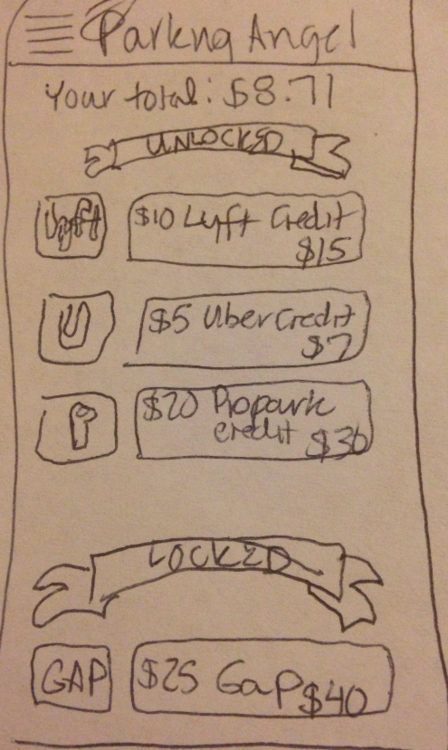 Parkng Angel
Your total: $8.71
UNLOCKED
Lyft $10 Lyft Credit
$15
U $5 Uber Credit
$7
P $20 Propark
credit $30
LOCKED
GAP $25 Gap $40